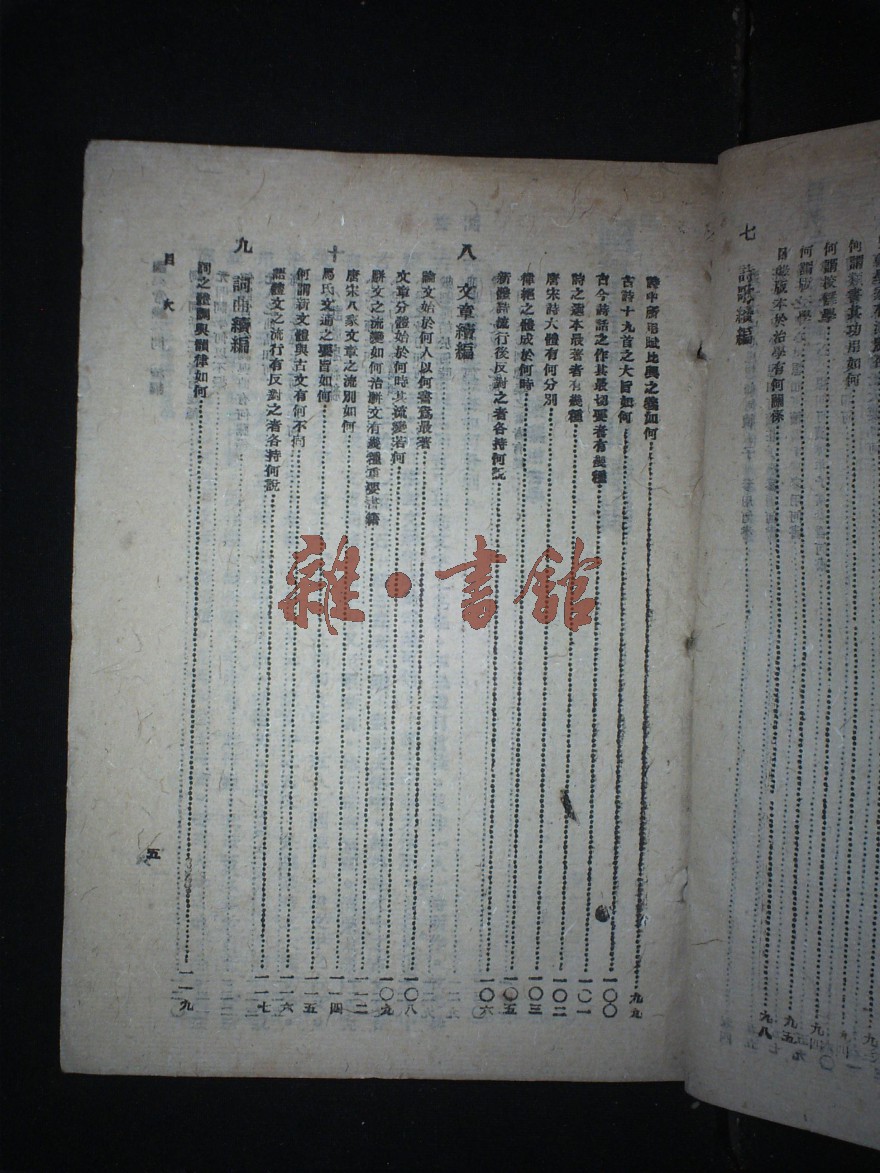 何謂叢書其功用如何
何謂校讐學
何謂版本學
版本於治學有何關係
九五
七 詩歌續編
九八
詩中所用賦比興之義如何
九九
古詩十九首之大旨如何
一〇〇
古今詩話之作其最切要者有幾種
一〇一
詩之選本最著者有幾種
一〇二
唐宋詩大體有何分別
一〇三
律絕之體成於何時
一〇五
新體詩流行後反對之者各持何說
一〇六
八 文章續編
論文始於何人以何書為最著
一〇八
文章分體始於何時其流變若何
一〇九
駢文之流變如何治駢文有幾種重要書籍
一一二
唐宋八家文章之流別如何
一一四
十 馬氏文通之要旨如何
一一五
何謂新文體與古文有何不同
一一六
語體文之流行有反對之者各持何說
一一七
九 詞曲續編
詞之體調與韻律如何
一一九
目次
五
雜·書館